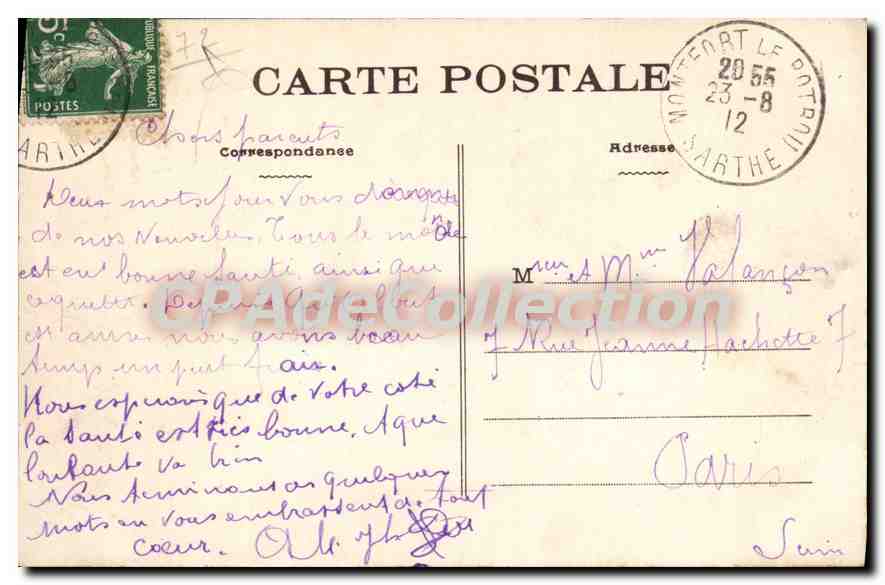 5
C
RÉPUBLIQUE FRANÇAISE
POSTES
SARTHE
72
CARTE POSTALE
MONTFORT LE ROTROU
20 55
23 -8
12
SARTHE
Chers parents
Correspondance
Adresse
Deux mots pour vous
de nos nouvelles. Tous le monde
est en bonne santé ainsi que
coquette. Depuis
nous avons beau
temps un peut frais.
Nous esperons que de votre coté
la santé est très bonne. A que
va bien
Nous terminons ces quelques
mots en vous embrassent de tout
coeur.
Msieur et Mme Valançon
7 Rue Jeanne Hachette 7
Paris
CPAdeCollection